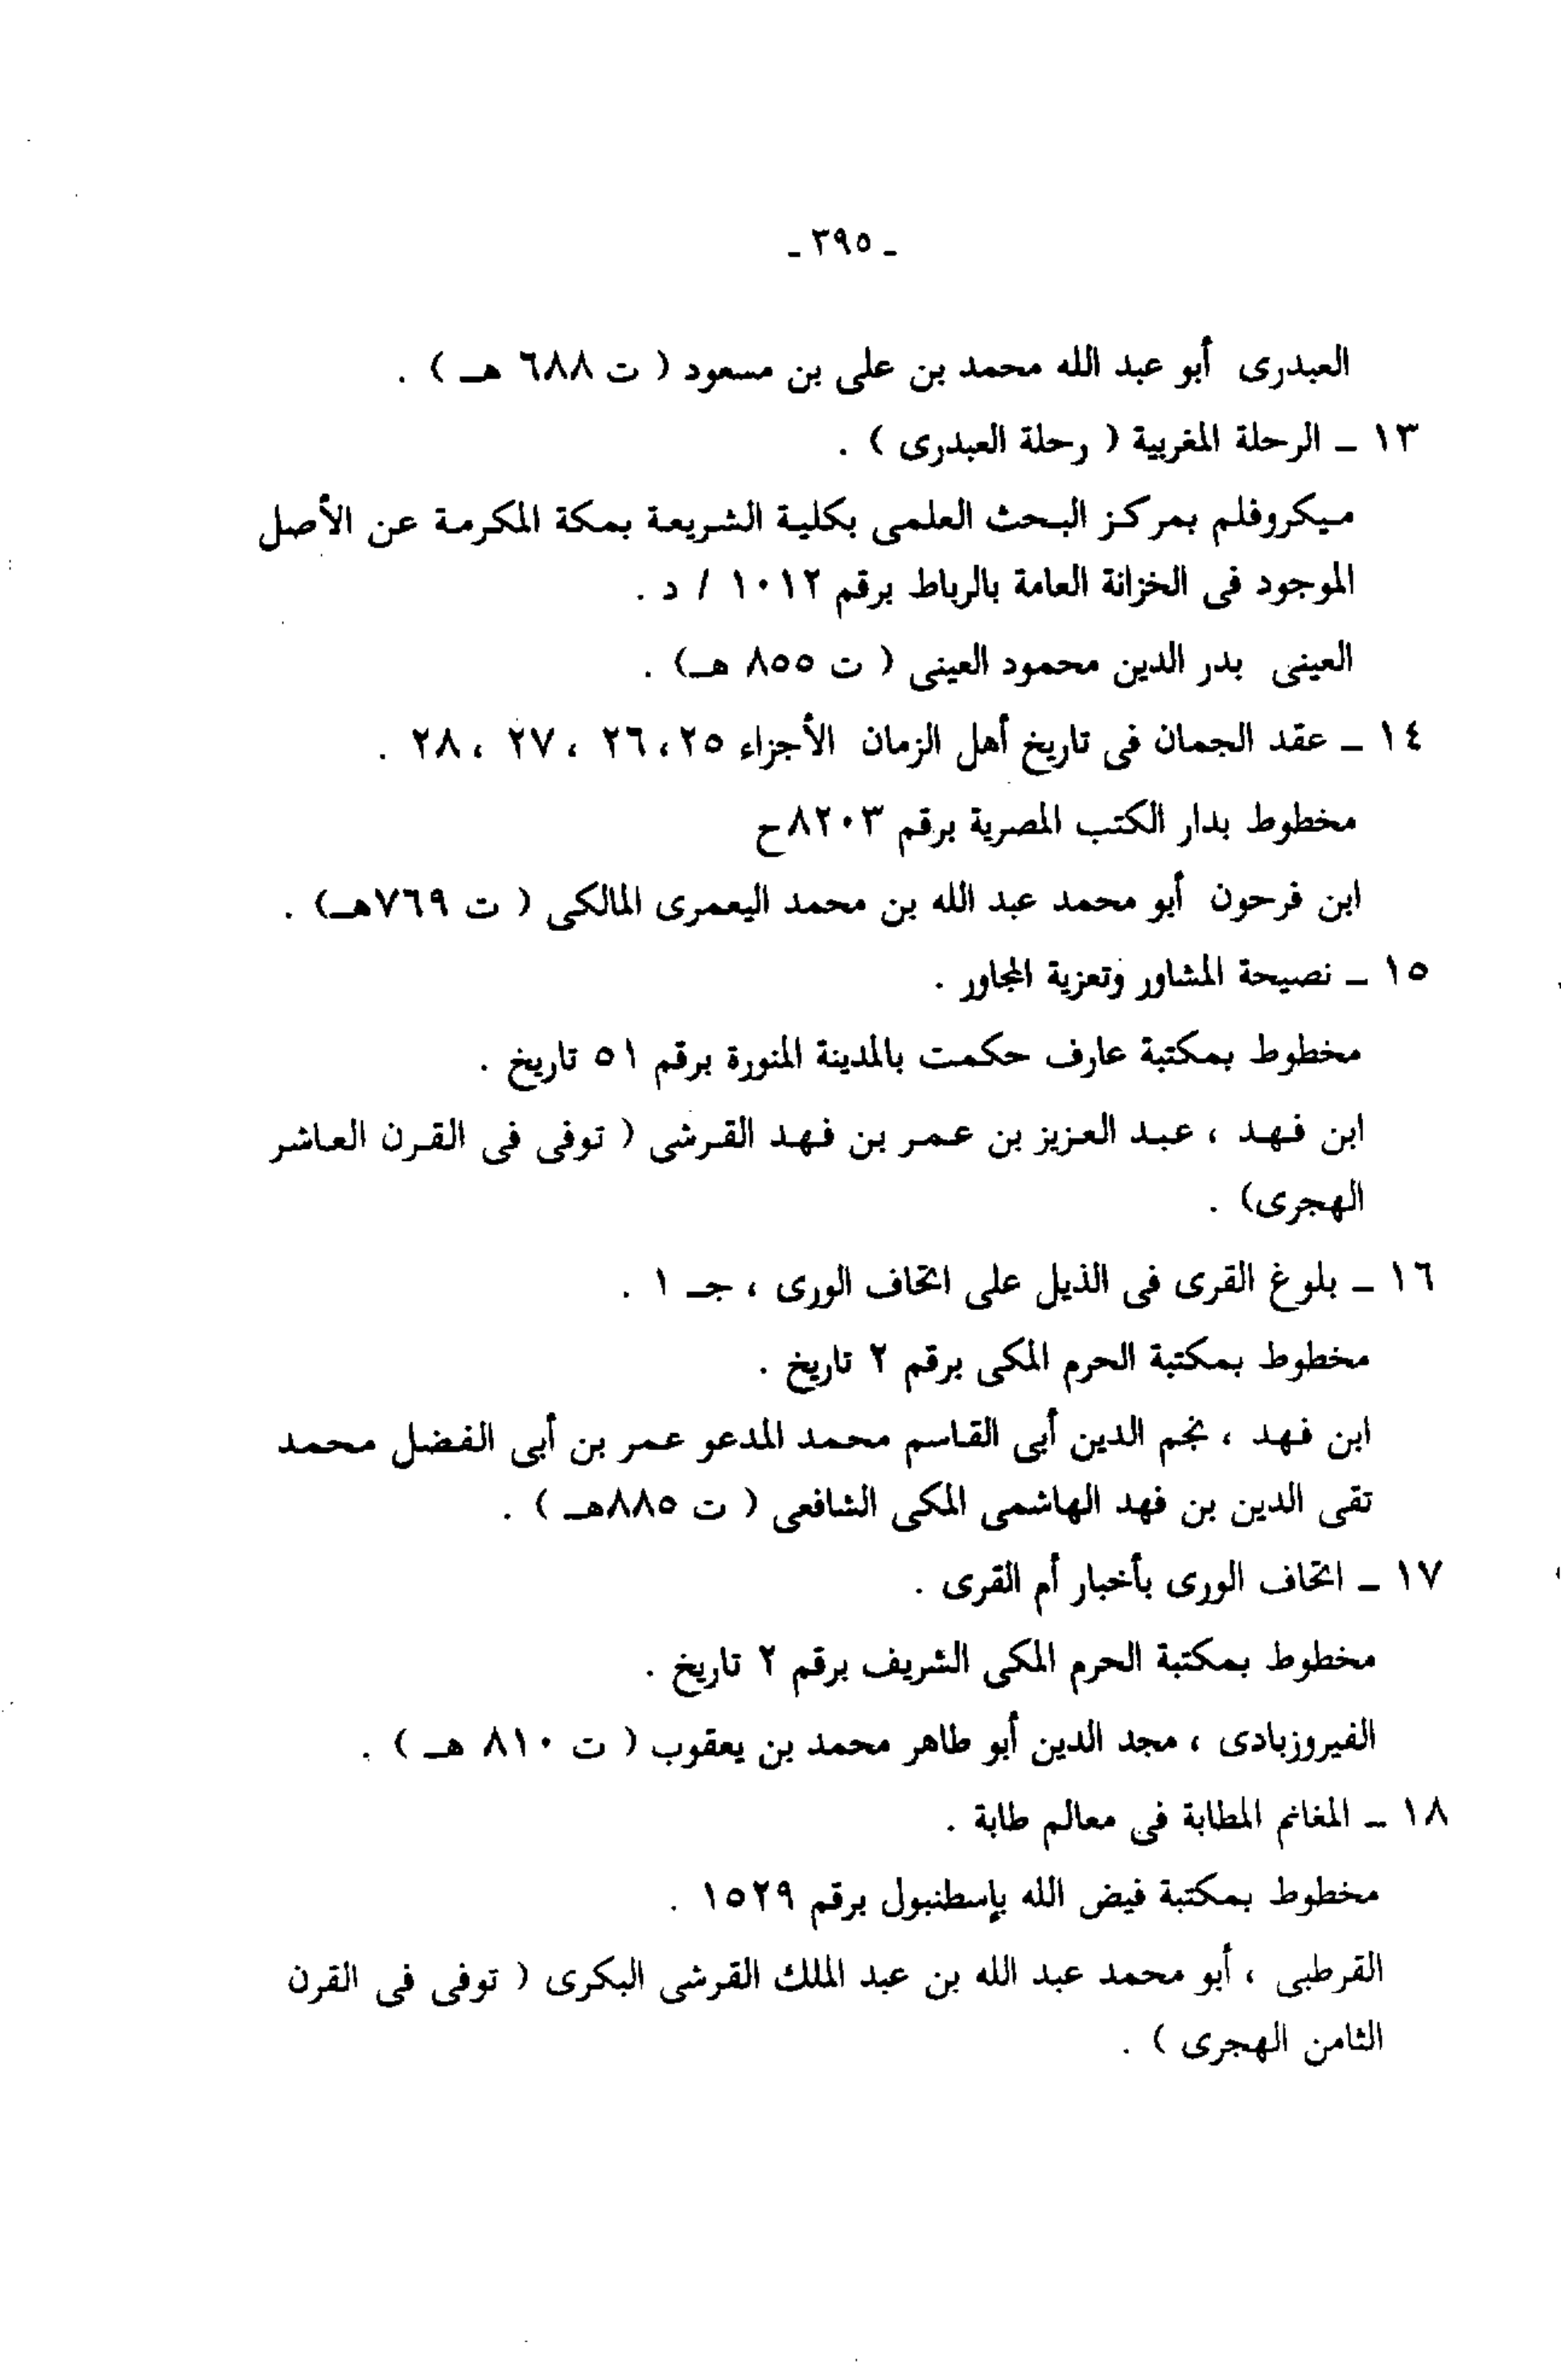 ـ ٣٩٥ ـ
العبدرى أبو عبد الله محمد بن على بن مسعود ( ت ٦٨٨ هـ ) .
١٣ ـ الرحلة المغربية ( رحلة العبدرى ) .
ميكروفلم بمركز البحث العلمى بكلية الشريعة بمكة المكرمة عن الأصل
الموجود فى الخزانة العامة بالرباط برقم ١٠١٢ / د .
العينى بدر الدين محمود العينى ( ت ٨٥٥ هـ) .
١٤ ـ عقد الجمان فى تاريخ أهل الزمان الأجزاء ٢٥، ٢٦ ، ٢٧ ، ٢٨ .
مخطوط بدار الكتب المصرية برقم ٨٢٠٣ح
ابن فرحون أبو محمد عبد الله بن محمد اليعمرى المالكى ( ت ٧٦٩هـ) .
١٥ ـ نصيحة المشاور وتعزية المجاور .
مخطوط بمكتبة عارف حكمت بالمدينة المنورة برقم ٥١ تاريخ .
ابن فهد ، عبد العزيز بن عمر بن فهد القرشى ( توفى فى القرن العاشر
الهجرى) .
١٦ ـ بلوغ القرى فى الذيل على اتحاف الورى ، جـ ١ .
مخطوط بمكتبة الحرم المكى برقم ٢ تاريخ .
ابن فهد ، نجم الدين أبى القاسم محمد المدعو عمر بن أبى الفضل محمد
تقى الدين بن فهد الهاشمى المكى الشافعى ( ت ٨٨٥هـ ) .
١٧ ـ اتحاف الورى بأخبار أم القرى .
مخطوط بمكتبة الحرم المكى الشريف برقم ٢ تاريخ .
الفيروزبادى ، مجد الدين أبو طاهر محمد بن يعقوب ( ت ٨١٠ هـ ) .
١٨ ـ المغانم المطابة فى معالم طابة .
مخطوط بمكتبة فيض الله بإسطنبول برقم ١٥٢٩ .
القرطبى ، أبو محمد عبد الله بن عبد الملك القرشى البكرى ( توفى فى القرن
الثامن الهجرى ) .